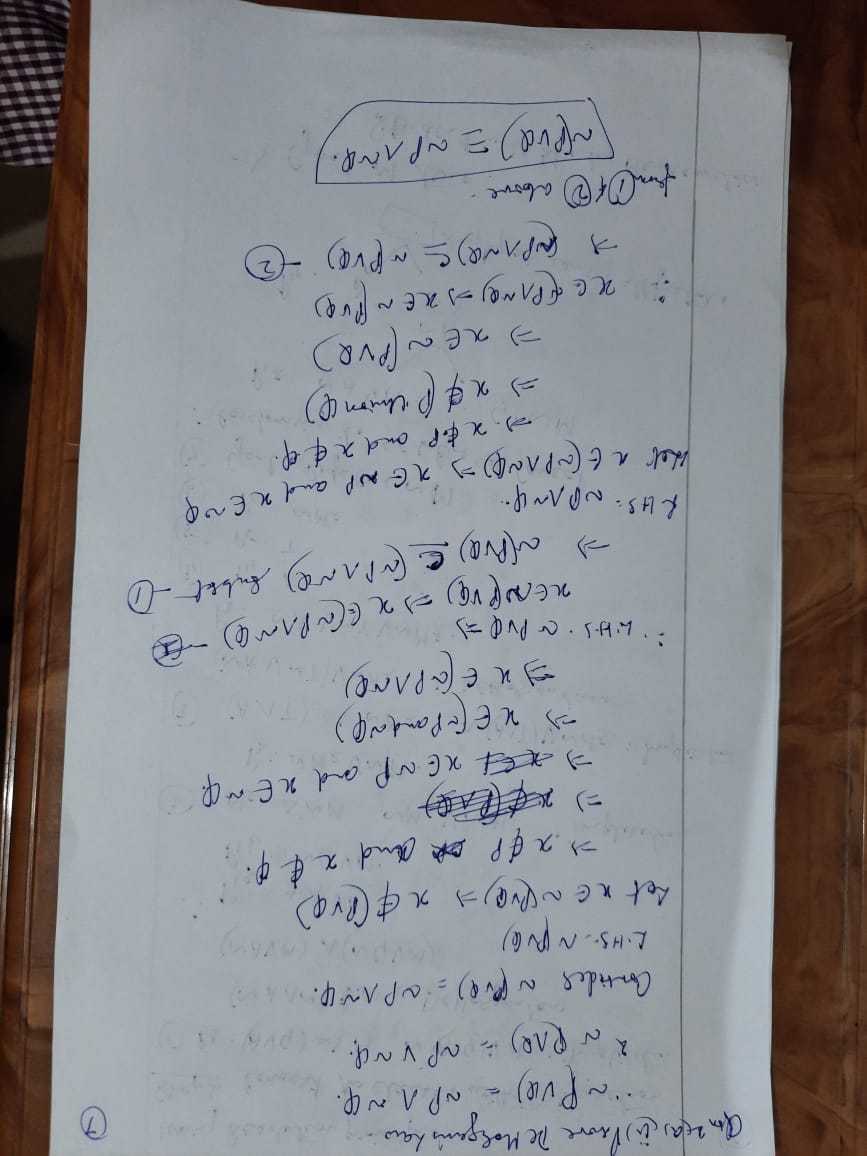 Qn 2(a) (ii) Prove De Morgan's Law
7
~(P∨Q) = ~P ∧ ~Q.
~(P∧Q) = ~P ∨ ~Q.
Consider ~(P∨Q) = ~P ∧ ~Q.
L.H.S. ~(P∨Q)
Let x ∈ ~(P∨Q) ⇒ x ∉ (P∨Q)
⇒ x ∉ P and x ∉ Q.
⇒
⇒ x ∈ ~P and x ∈ ~Q.
⇒ x ∈ (~P and ~Q)
⇒ x ∈ (~P ∧ ~Q)
∴ L.H.S. ~P∨Q ⇒
x ∈ ~(P∨Q) ⇒ x ∈ (~P ∧ ~Q) —
⇒ ~(P∨Q) ⊆ (~P ∧ ~Q) subset — 1
RHS: ~P ∧ ~Q.
Let x ∈ (~P ∧ ~Q) ⇒ x ∈ ~P and x ∈ ~Q
⇒ x ∉ P and x ∉ Q.
⇒ x ∉ (P Union Q)
⇒ x ∈ ~(P∨Q)
∴ x ∈ (~P ∧ ~Q) ⇒ x ∈ ~(P∨Q)
⇒ (~P ∧ ~Q) ⊆ ~(P∨Q) — 2
from 1 & 2 above.
~(P∨Q) ≡ ~P ∧ ~Q.